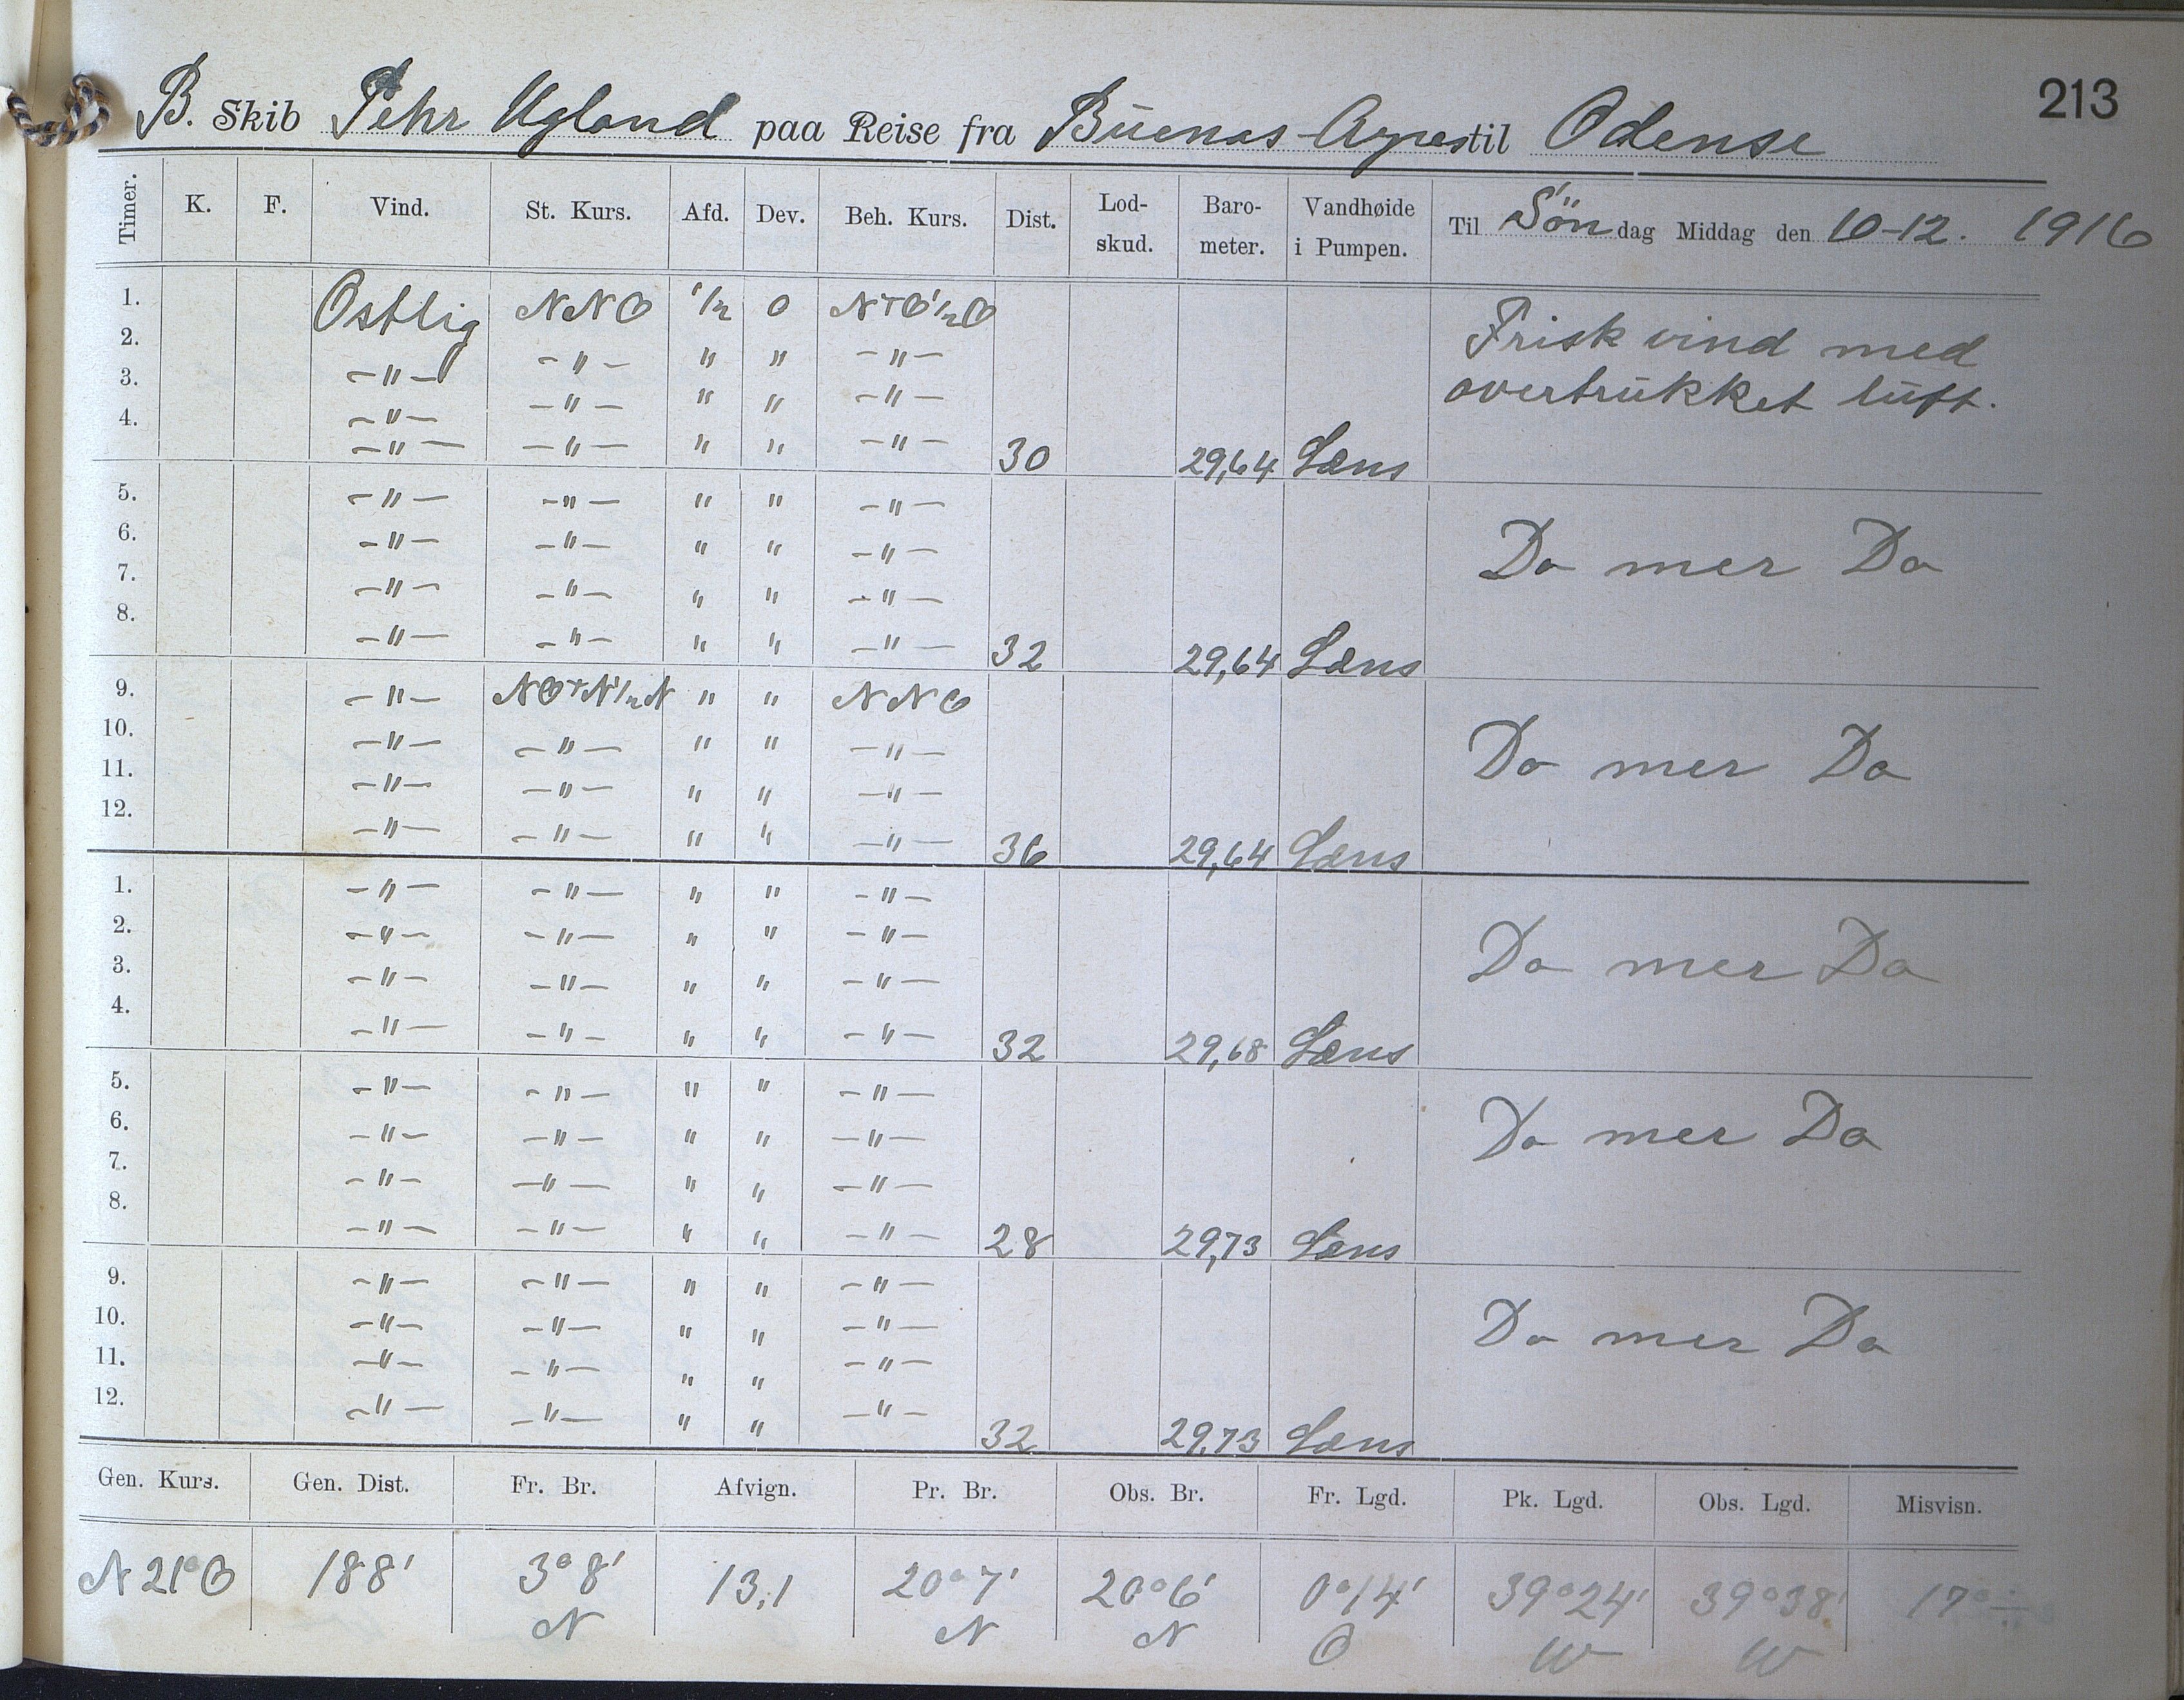 213
B. Skib Pehr Ugland paa Reise fra Büenas-Ayres til Odense
Timer. K. F. Vind. St. Kurs. Afd. Dev. Beh. Kurs. Dist. Lod-skud. Baro-meter. Vandhøide i Pumpen. Til Söndag Middag den 10-12. 1916
1. Ostlig NNO 1/2 0 NTO1/2O Frisk vind med
2. -"- -"- " " -"- overtrükket lüft.
3. -"- -"- " " -"-
4. -"- -"- " " -"- 30 29,64 Læns
5. -"- -"- " " -"-
6. -"- -"- " " -"- Do mer Do
7. -"- -"- " " -"-
8. -"- -"- " " -"- 32 29,64 Læns
9. -"- NOTN1/2N " " NNO
10. -"- -"- " " -"- Do mer Do
11. -"- -"- " " -"-
12. -"- -"- " " -"- 36 29,64 Læns
1. -"- -"- " " -"-
2. -"- -"- " " -"- Do mer Do
3. -"- -"- " " -"-
4. -"- -"- " " -"- 32 29,68 Læns
5. -"- -"- " " -"-
6. -"- -"- " " -"- Do mer Do
7. -"- -"- " " -"-
8. -"- -"- " " -"- 28 29,73 Læns
9. -"- -"- " " -"-
10. -"- -"- " " -"- Do mer Do
11. -"- -"- " " -"-
12. -"- -"- " " -"- 32 29,73 Læns
Gen. Kurs. Gen. Dist. Fr. Br. Afvign. Pr. Br. Obs. Br. Fr. Lgd. Pk. Lgd. Obs. Lgd. Misvisn.
N21°O 188' 3°8' 13,1 20°7' 20°6' 0°14' 39°24' 39°38' 17°÷
N N N O W W